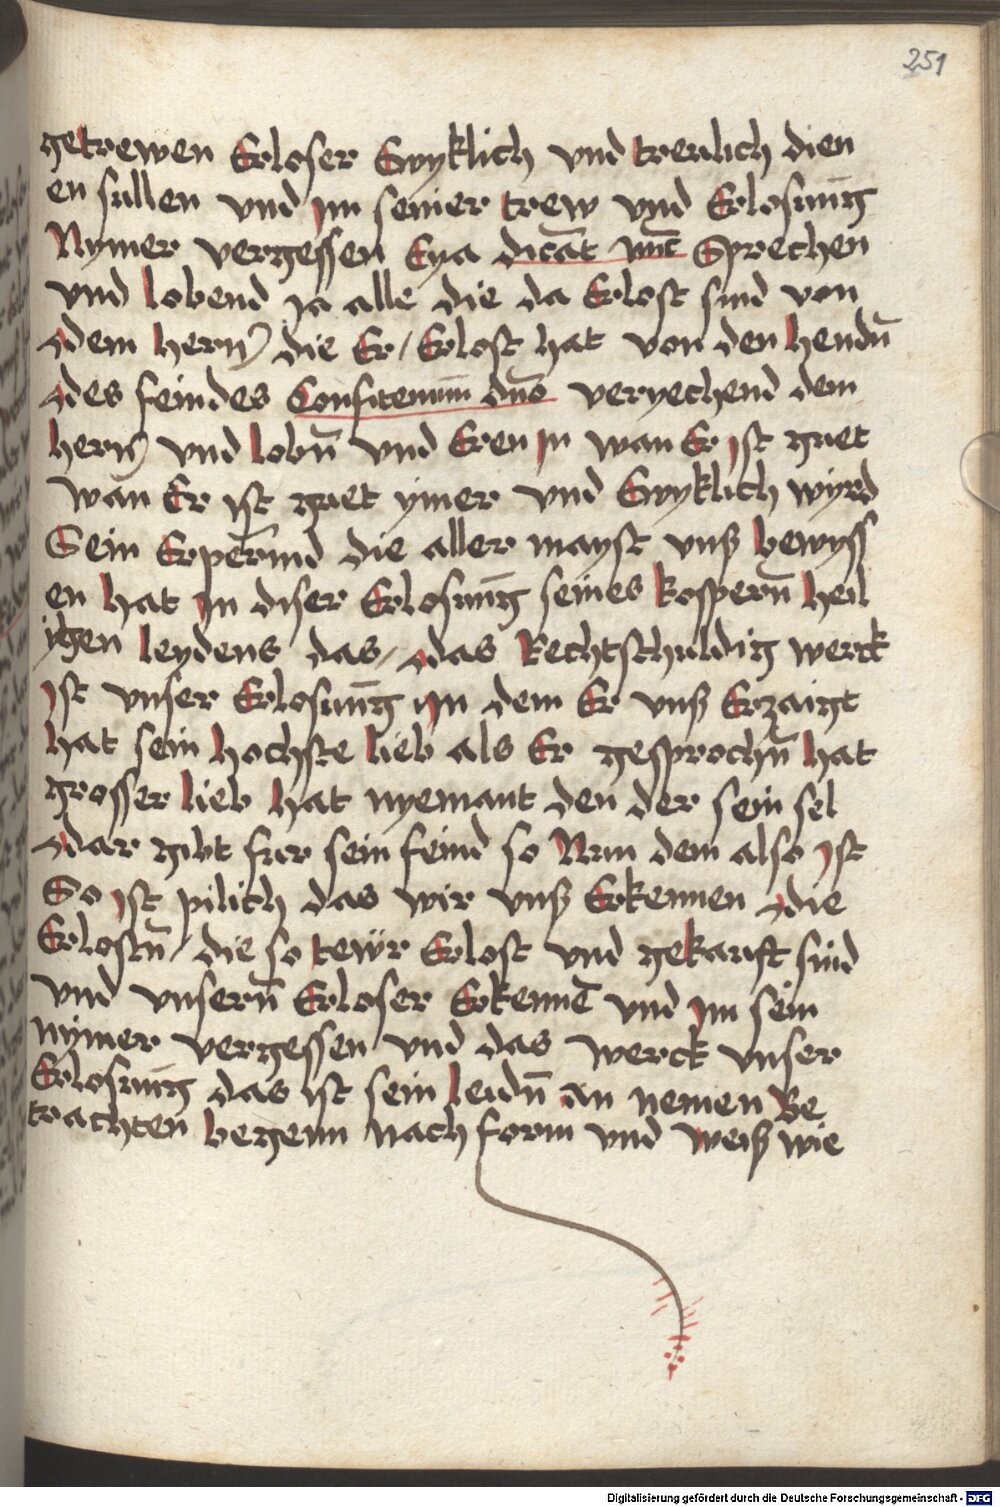 251
getrewen Erloser Ewyklich vnd trewlich dien
en sullen vnd jm seiner trew vnd Erlosung
Nymer vergessen Eya dicat nūc Sprechen
vnd lobend ja alle die da Erlost sind von
dem hern die Er / Erlost hat von den hendn̄
des feindes Confitemini dn̄o veryechend dem
hern vnd lobn̄ vnd Eren jn wan Er jst guet
wan Er ist guet ymer vnd Ewyklich wyrd
Sein Erpermd die aller mayst vnß bewyss
en hat jn diser Erlosung seines kosspern̄ heil
igen leydens das / das Rechtschuldig werck
jst vnser Erlosung jn dem Er vnß Erzaigt
hat sein hochste lieb als Er gesprochn̄ hat
grosser lieb hat nyemant den der sein sel
dar gibt fur sein feind so Nun dem also jst
So jst pilich das wir vnß Erkennen die
Erlostn̄ / die so tewr Erlost vnd gekauft sind
vnd vnsern̄ Erloser Erkennē vnd jm sein
nymer vergessen vnd das werck vnser
Erlosung das ist sein leidn̄ an nemen Be
trachten begenn nach form vnd weiß wie
Digitalisierung gefördert durch die Deutsche Forschungsgemeinschaft - DFG